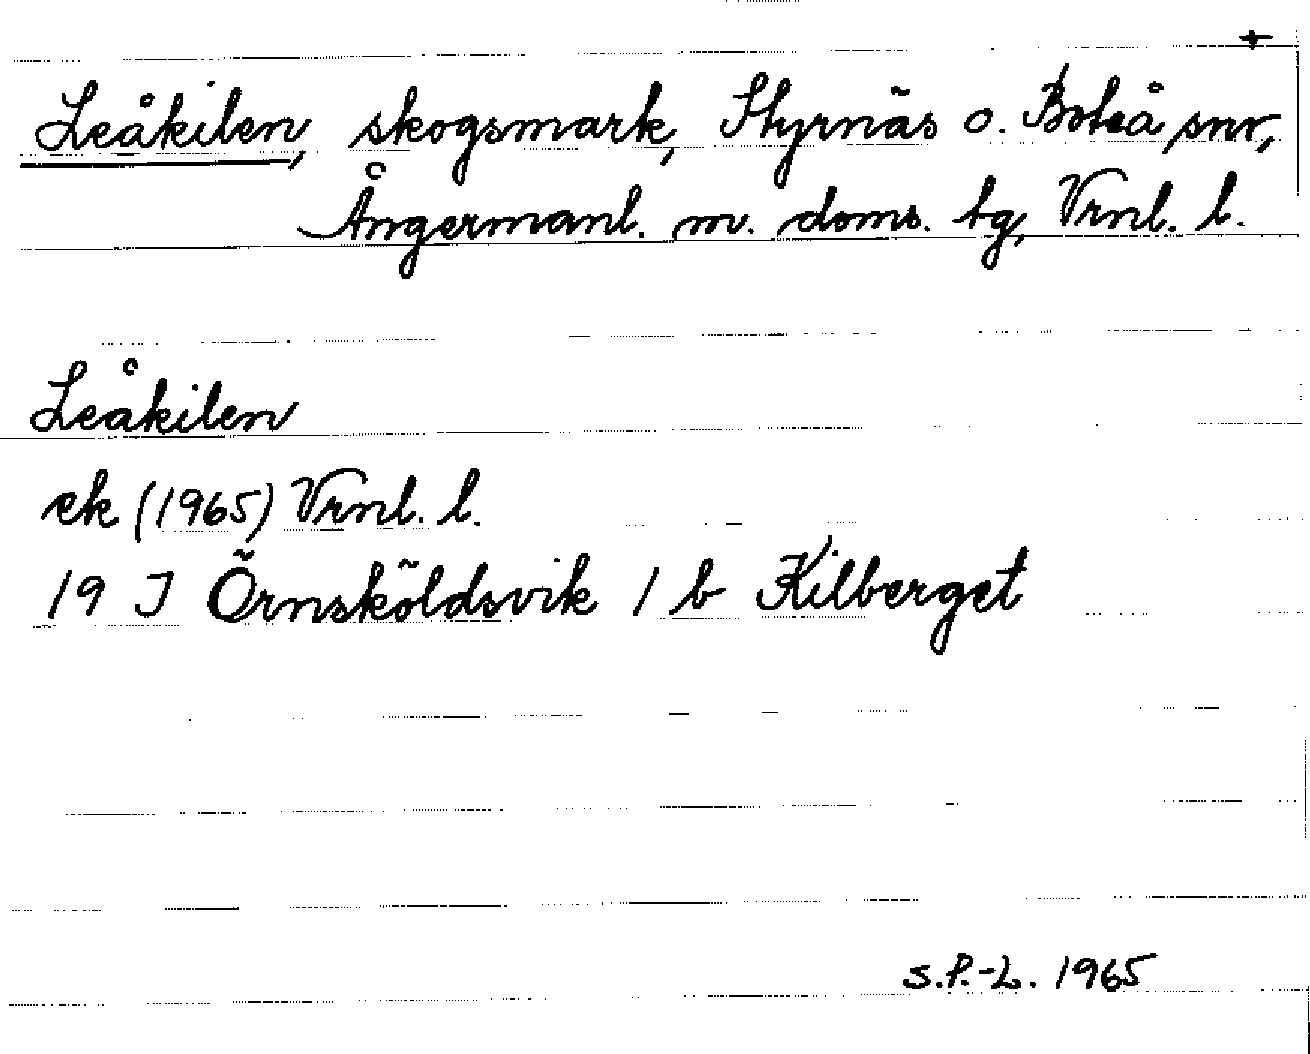 +
Leåkilen, skogsmark, Styrnäs o. Boteå snr,
Ångermanl. m. doms. tg, Vrnl. l.
Leåkilen
ek (1965) Vrnl. l.
19 J Örnsköldsvik 1 b Kilberget
S.P.-L. 1965